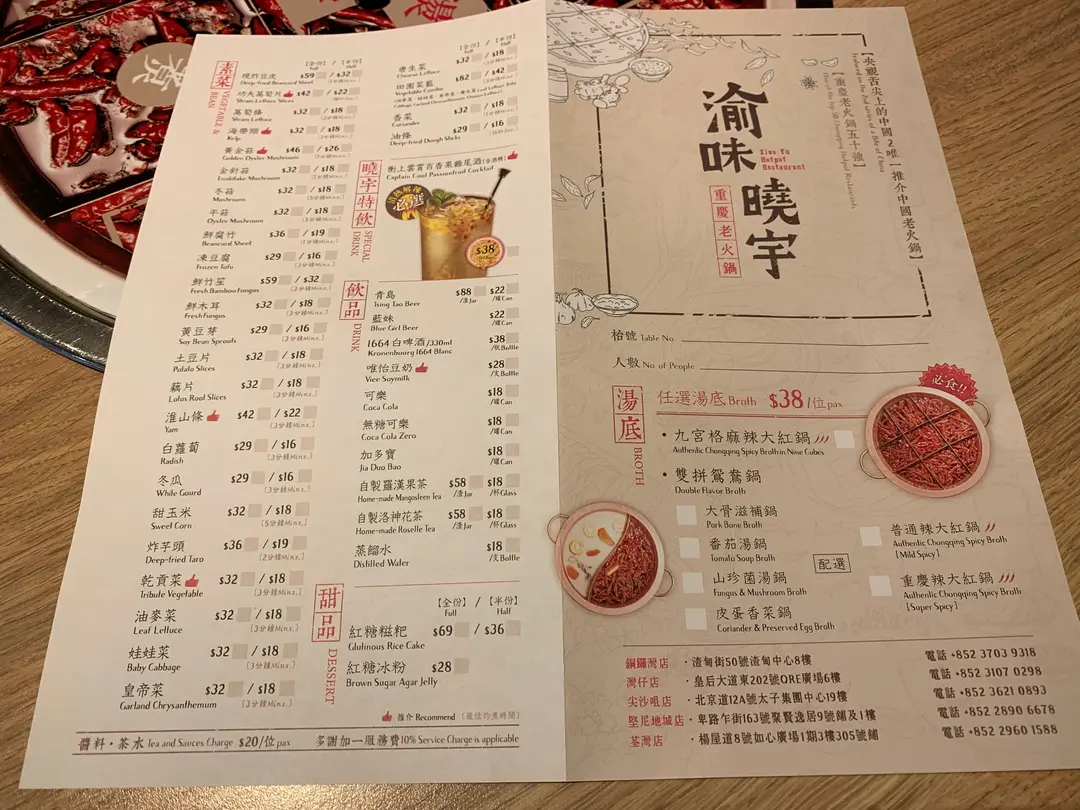 素菜
VEGETABLE & BEAN
(全份) Full / (半份) Half
現炸豆皮 $59 / $32
Deep-fried Beancurd Sheet
功夫萵筍片 $42 / $22
Stram Lettuce Slices
萵筍條 $32 / $18
Stram Lettuce
海帶頭 $32 / $18
Kelp
黃金菇 $46 / $26
Golden Oyster Mushroom
金針菇 $32 / $18
Enokitake Mushroom
冬菇 $32 / $18
Mushroom
平菇 $32 / $18
Oyster Mushroom
鮮腐竹 $36 / $19
Beancurd Sheet
凍豆腐 $29 / $16
Frozen Tofu
鮮竹笙 $59 / $32
Fresh Bamboo Fungus
鮮木耳 $32 / $18
Fresh Fungus
黃豆芽 $29 / $16
Soy Bean Sprouts
土豆片 $32 / $18
Potato Slices
藕片 $32 / $18
Lotus Root Slices
淮山條 $42 / $22
Yam
白蘿蔔 $29 / $16
Radish
冬瓜 $29 / $16
White Gourd
甜玉米 $32 / $18
Sweet Corn [5分鐘Mins.]
炸芋頭 $36 / $19
Deep-fried Taro [2分鐘Mins.]
乾貢菜 $32 / $18
Tribute Vegetable [3分鐘Mins.]
油麥菜 $32 / $18
Leaf Lettuce [3分鐘Mins.]
娃娃菜 $32 / $18
Baby Cabbage [3分鐘Mins.]
皇帝菜 $32 / $18
Garland Chrysanthemum [3分鐘Mins.]
(全份) Full / (半份) Half
唐生菜 $32 / $18
Chinese Lettuce
田園菜籃 $82 / $42
Vegetable Combo
香菜 $32 / $18
Coriander
油條 $29 / $16
Deep-fried Dough Sticks
曉宇特飲
SPECIAL DRINK
衝上雲霄百香果雞尾酒(含酒精)
Captain Cool Passionfruit Cocktail
必選
$38
飲品
DRINK
青島 $88 /渣Jar $22 /罐Can
Tsing Tao Beer
藍妹 $22 /罐Can
Blue Girl Beer
1664白啤酒/330ml $38 /瓶Bottle
Kronenbourg 1664 Blanc
唯怡豆奶 $28 /支Bottle
Viee Soymilk
可樂 $18 /罐Can
Coca Cola
無糖可樂 $18 /罐Can
Coca Cola Zero
加多寶 $18 /罐Can
Jia Duo Bao
自製羅漢果茶 $58 /渣Jar $18 /杯Glass
Home-made Mangosteen Tea
自製洛神花茶 $58 /渣Jar $18 /杯Glass
Home-made Roselle Tea
蒸餾水 $18 /支Bottle
Distilled Water
甜品
DESSERT
[全份] Full / [半份] Half
紅糖糍粑 $69 / $36
Glutinous Rice Cake
紅糖冰粉 $28
Brown Sugar Agar Jelly
推介 Recommend (最佳灼煮時間)
醬料·茶水 Tea and Sauces Charge $20/位pax 多謝加一服務費10% Service Charge is applicable
【央視舌尖上的中國2唯一推介中國老火鍋】
【重慶老火鍋五十強】
渝味曉宇
Xiao Yu
Hotpot
Restaurant
重慶老火鍋
枱號 Table No.
人數 No of People
湯底
BROTH
任選湯底 Broth $38/位pax
必食!!
• 九宮格麻辣大紅鍋
Authentic Chongqing Spicy Broth in Nine Cubes
• 雙拼鴛鴦鍋
Double Flavor Broth
大骨滋補鍋
Pork Bone Broth
番茄湯鍋
Tomato Soup Broth
山珍菌湯鍋
Fungus & Mushroom Broth
皮蛋香菜鍋
Coriander & Preserved Egg Broth
配選
普通辣大紅鍋
Authentic Chongqing Spicy Broth
[Mild Spicy]
重慶辣大紅鍋
Authentic Chongqing Spicy Broth
[Super Spicy]
銅鑼灣店 · 渣甸街50號渣甸中心8樓 電話 +852 3703 9318
灣仔店 · 皇后大道東202號QRE廣場6樓 電話 +852 3107 0298
尖沙咀店 · 北京道12A號太子集團中心19樓 電話 +852 3621 0893
堅尼地城店 · 卑路乍街163號聚賢逸居9號舖及1樓 電話 +852 2890 6678
荃灣店 · 楊屋道8號如心廣場1期3樓305號舖 電話 +852 2960 1588